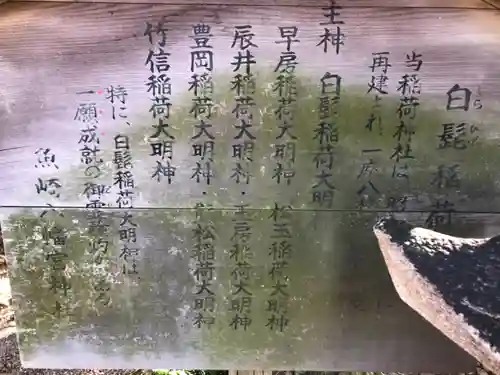 白髭稲荷
しらひげ
当稲荷神社は
再建され、一
主神 白髭稲荷大明
早房稲荷大明神 松玉稲荷大明神
辰井稲荷大明神・玉房稲荷大明神
豊岡稲荷大明神 松稲荷大明神
竹信稲荷大明神
特に、白髭稲荷大明神は
一願成就の御霊
魚崎八幡宮神社